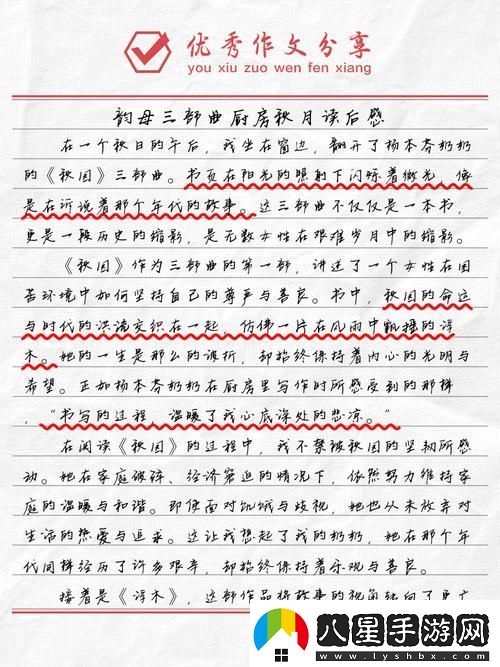 优秀作文分享
you xiu zuo wen fen xiang
韵母三部曲厨房秋月读后感
在一个秋日的午后，我坐在窗边，翻开了杨本芬奶奶
的《秋园》三部曲。书页在阳光的照射下闪烁着微光，像
是在诉说着那个年代的故事。这三部曲不仅仅是一本书，
更是一段历史的缩影，是无数女性在艰难岁月中的缩影。
《秋园》作为三部曲的第一部，讲述了一个女性在困
苦环境中如何坚持自己的尊严与善良。书中，秋园的命运
与时代的洪流交织在一起，仿佛一片在风雨中飘摇的浮
木。她的一生是那么的波折，却始终保持着内心的光明与
希望。正如杨本芬奶奶在厨房里写作时所感受到的那样
，“书写的过程，温暖了我心底深处的悲凉。”
在阅读《秋园》的过程中，我不禁被秋园的坚韧所感
动。她在家庭破碎、经济窘迫的情况下，依然努力维持家
庭的温暖与和谐。即便面对饥饿与歧视，她也从未放弃对
生活的热爱与追求。这让我想起了我的奶奶，她在那个年
代同样经历了许多艰辛，却始终保持着乐观与善良。
接着是《浮木》，这部作品将故事的视角转向了更广
八星手游网
www.lyshbx.com